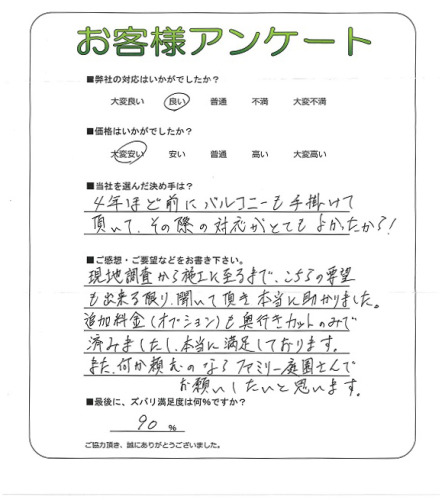 お客様アンケート
■弊社の対応はいかがでしたか？
大変良い 良い 普通 不満 大変不満
■価格はいかがでしたか？
大変安い 安い 普通 高い 大変高い
■当社を選んだ決め手は？
4年ほど前にバルコニーも手掛けて
頂いて、その際の対応がとてもよかったから！
■ご感想・ご要望などをお書き下さい。
現地調査から施工に至るまで、こちらの要望
も出来る限り、聞いて頂き本当に助かりました。
追加料金（オプション）も奥行きカットのみで
済みましたし、本当に満足しております。
また、何か頼むのならファミリー庭園さんで
お願いしたいと思います。
■最後に、ズバリ満足度は何%ですか？
90 %
ご協力頂き、誠にありがとうございました。